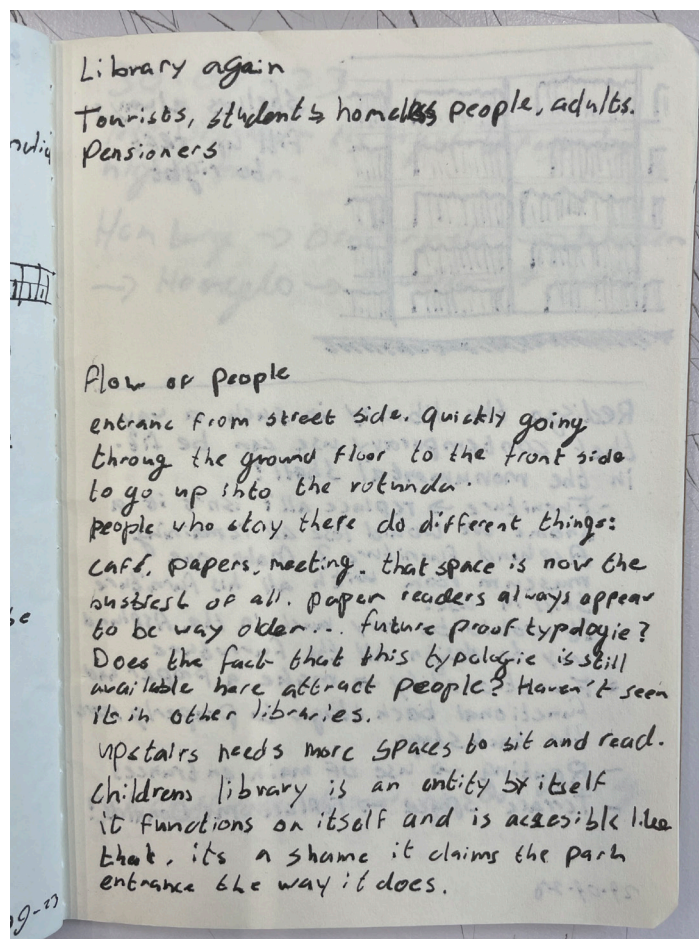 Library again
Tourists, students homeless people, adults.
Pensioners
flow of people
entranc from street side. Quickly going
throug the ground floor to the front side
to go up into the rotunda.
people who stay there do different things:
café, papers, meeting. that space is now the
busiest of all. paper readers always appear
to be way older... future proof typologie?
Does the fact that this typologie is still
available here attract people? Haven't seen
it in other libraries.
upstairs needs more spaces to sit and read.
childrens library is an entity by itself
it functions on itself and is accesible like
that, its a shame it claims the park
entrance the way it does.